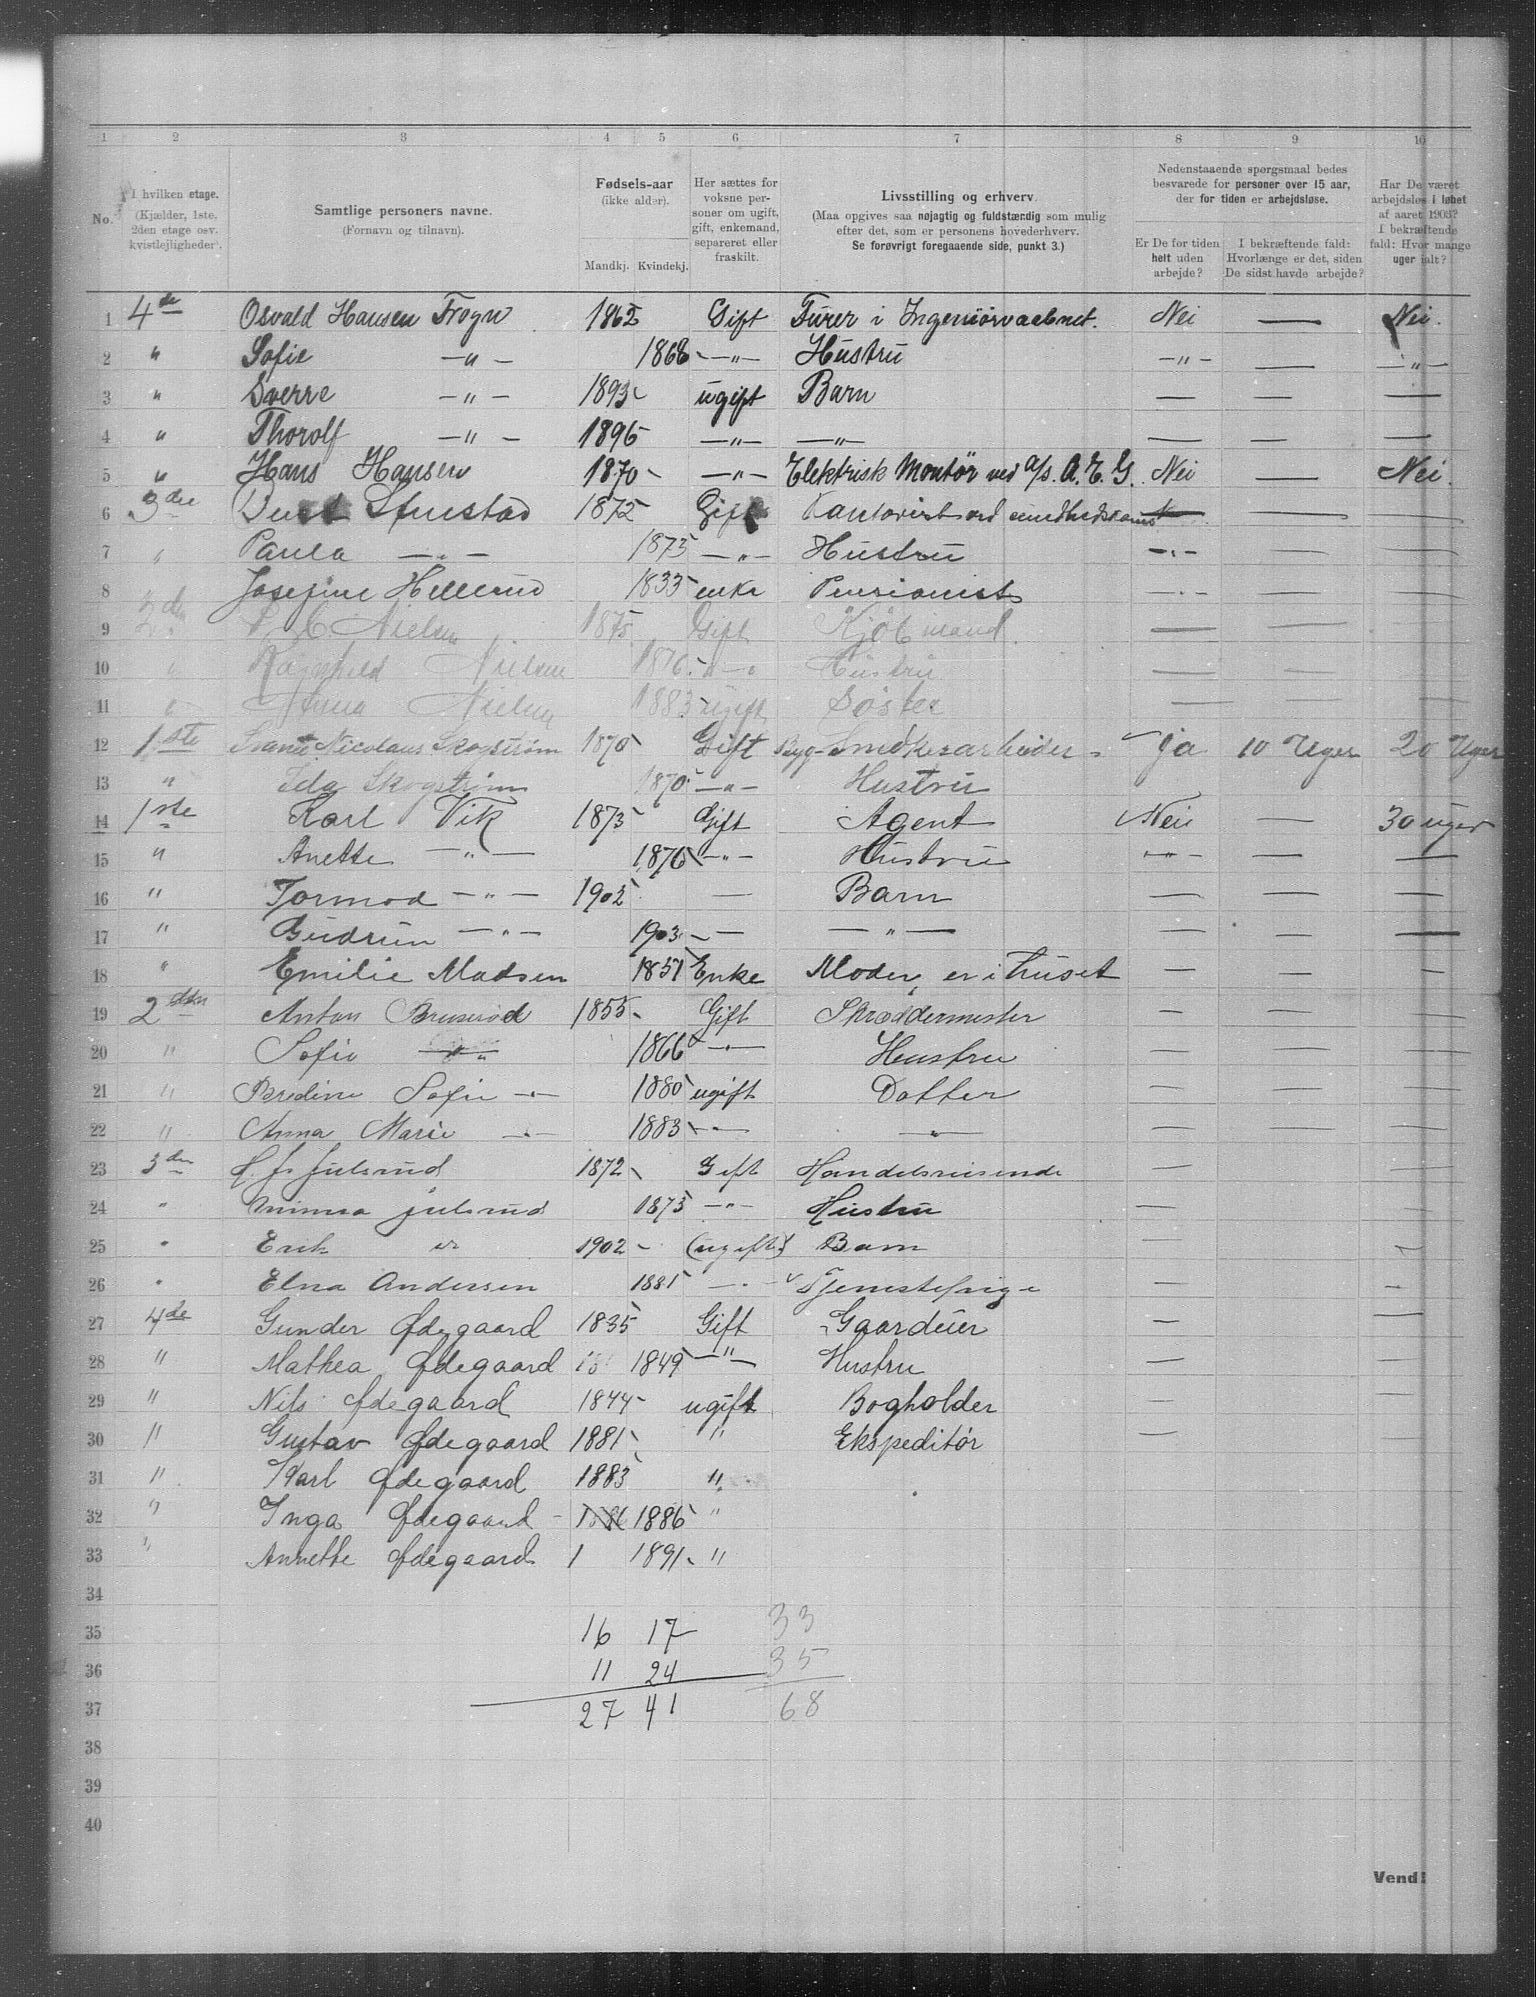 1 2 3 4 5 6 7 8 9 10
No. I hvilken etage. (Kjælder, 1ste. 2den etage osv. kvistlejligheder). Samtlige personers navne. (Fornavn og tilnavn). Fødsels-aar (ikke alder). Mandkj. Kvindekj. Her sættes for voksne personer om ugift, gift, enkemand, separeret eller fraskilt. Livsstilling og erhverv. (Maa opgives saa nøjagtig og fuldstændig som mulig efter det, som er personens hovederhverv. Se forøvrigt foregaaende side, punkt 3.) Nedenstaaende spørgsmaal bedes besvarede for personer over 15 aar, der for tiden er arbejdsløse. Er De for tiden helt uden arbejde? I bekræftende fald: Hvorlænge er det, siden De sidst havde arbejde? Har De været arbejdsløs i løbet af aaret 1903? I bekræftende fald: Hvor mange uger ialt?
1 4de Osvald Hansen Frogn 1862 Gift Furer i Ingeniørvaabnet. Nei — Nei.
2 " Sofie —"— 1868 —"— Hustru —"— — —"—
3 " Sverre —"— 1893 ugift Barn — — —
4 " Thorolf —"— 1896 —"— —"— — — —
5 " Hans Hansen 1870 —"— Elektrisk Montør ved A/s. A. E. G. Nei — Nei.
6 3die Stustad 1872 Gift — —
7 " Paula —"— 1875 —"— Hustru —"— — —
8 Josefine Hellerud 1833 enke Pensionist —"— — —
9 2den Nielsen 1875 Gift Kjøbmand. — — —
10 " Ragnhild Nielsen 1876 —"— Hustru — — —
11 " Anna Nielsen 1883 ugift Søster — — —
12 1ste Nicolaus Skogstrøm 1870 Gift Byg-Smedkerarbeider Ja 10 Uger 20 Uger
13 " Ida Skogstrøm 1870 —"— Hustru
14 1ste Karl Vik 1873 Gift Agent Nei — 30 uger
15 " Anette —"— 1876 —"— Hustru —"— — —
16 " Tormod —"— 1902 — Barn — — —
17 " Gudrun —"— 1903 — —"— — — —
18 " Emilie Madsen 1851 Enke Moder, er i huset — — —
19 2den Anton Bruserød 1855 Gift Skræddermester — — —
20 " Sofie —"— 1866 —"— Hustru — — —
21 " Beredine Sofie —"— 1880 ugift Datter — — —
22 " Anna Marie —"— 1883 —"— —"— — — —
23 3den H. J. Julsrud 1872 Gift Handelsreisende — —
24 " Minna Julsrud 1873 —"— Hustru —
25 " Erik " 1902 (ugift) Barn —
26 " Elna Andersen 1881 —"— Tjenestepige — —
27 4de Gunder Ødegaard 1835 Gift Gaardeier — —
28 " Mathea Ødegaard 1849 —"— Hustru — —
29 " Nils Ødegaard 1844 ugift Bogholder — —
30 " Gustav Ødegaard 1881 " Ekspeditør —
31 " Karl Ødegaard 1883 "
32 " Inga Ødegaard 1886 1886 "
33 " Annette Ødegaard 1 1891 "
34
35 16 17 33
36 11 24 35
37 27 41 68
38
39
40
Vend!